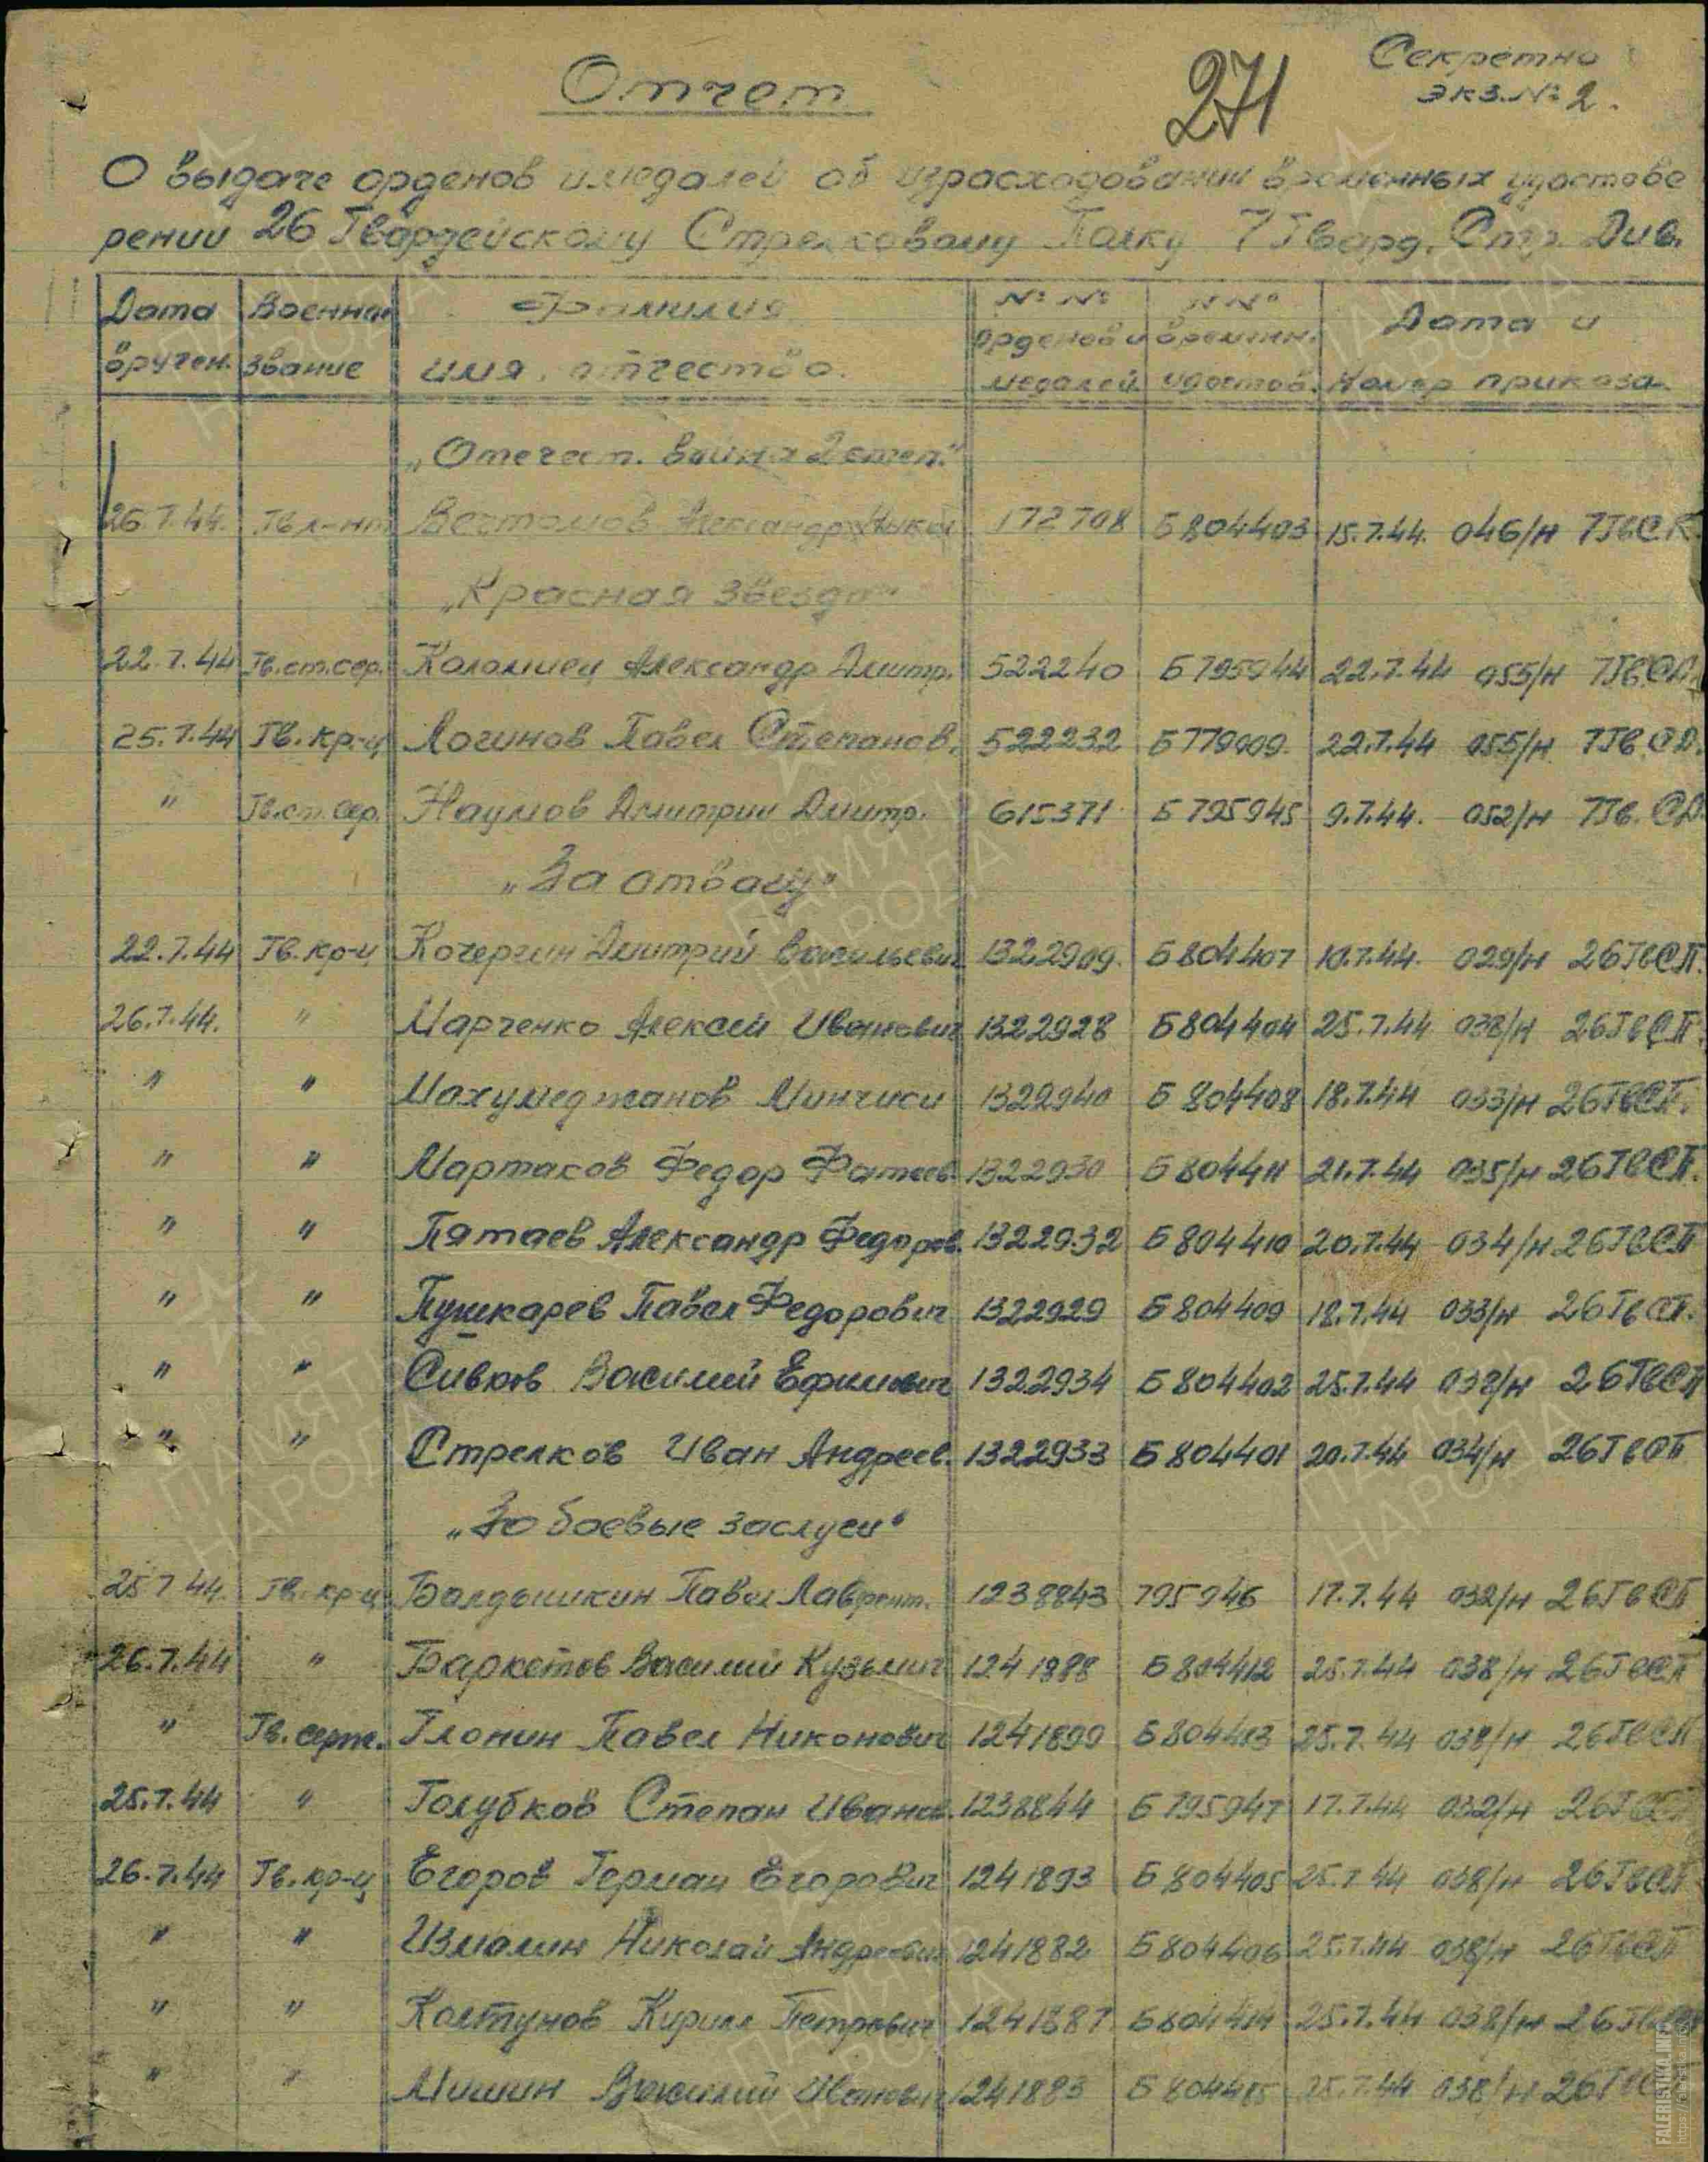 Секретно
экз. № 2.
271
Отчет
О выдаче орденов и медалей об израсходовании временных удостове
рений 26 Гвардейскому Стрелковому Полку 7 Гвард. Стр. Див.
Дата вручен. Военное звание Фамилия имя, отчество. №№ орденов и медалей №№ времен. удостов. Дата и номер приказа
„Отечест. война 2 степ."
26.7.44. Гв л-нт Вечтомов Александр 172708 Б804403 15.7.44. 046/н 7 Гв С К.
„Красная звезда"
22.7.44 Гв.ст.сер. Коломиец Александр Дмитр. 522240 Б795944 22.7.44 055/н 7 Гв. СД.
25.7.44 Гв. кр-ц Логинов Павел Степанов. 522232 Б779909. 22.7.44 055/н 7 Гв. СД.
" Гв.ст. сер. Наумов Дмитрий Дмитр. 615371 Б795945 9.7.44. 052/н 7 Гв. СД.
„За отвагу"
22.7.44 Гв. кр-ц Кочергин Дмитрий Васильевич 1322909. Б804407 10.7.44. 029/н 26 ГвСП.
26.7.44. " Марченко Алексей Иванович 1322928 Б804404 25.7.44 038/н 26 ГвСП.
" " Махумеджанов Минчиси 1322940 Б804408 18.7.44 033/н 26 ГвСП.
" " Мартаков Федор Фатеев. 1322930 Б804411 21.7.44 035/н 26 ГвСП.
" " Пятаев Александр Федоров. 1322932 Б804410 20.7.44 034/н 26 ГвСП
" " Пушкарев Павел Федорович 1322929 Б804409 18.7.44 033/н 26 Гв СП.
" " Сивков Василий Ефимович 1322934 Б804402 25.7.44 038/н 26 ГвСП
" " Стрелков Иван Андреев. 1322933 Б804401 20.7.44 034/н 26 Гв СП
„За боевые заслуги"
25.7.44. Гв. кр-ц Балдышкин Павел Лаврент. 1238843 795946 17.7.44 032/н 26 Гв СП
26.7.44 " Баркетов Василий Кузьмич 1241888 Б804412 25.7.44 038/н 26 ГвСП
" Гв. серж. Глонин Павел Никонович 1241899 Б804413 25.7.44 038/н 26 ГвСП
25.7.44 " Голубков Степан Иванов. 1238844 Б795947 17.7.44 032/н 26 ГвСП
26.7.44 Гв. кр-ц Егоров Герман Егорович 1241893 Б804405 25.7.44 038/н 26 ГвСП
" " Измалин Николай Андреевич 1241882 Б804406 25.7.44 038/н 26 ГвСП
" " Колтунов Кирилл Петрович 1241887 Б804414 25.7.44 038/н 26 ГвСП
" " Мишин Василий Иванович 1241883 Б804415 25.7.44 038/н 26 Гв
ПАМЯТЬ НАРОДА
FALERISTIKA.INFO